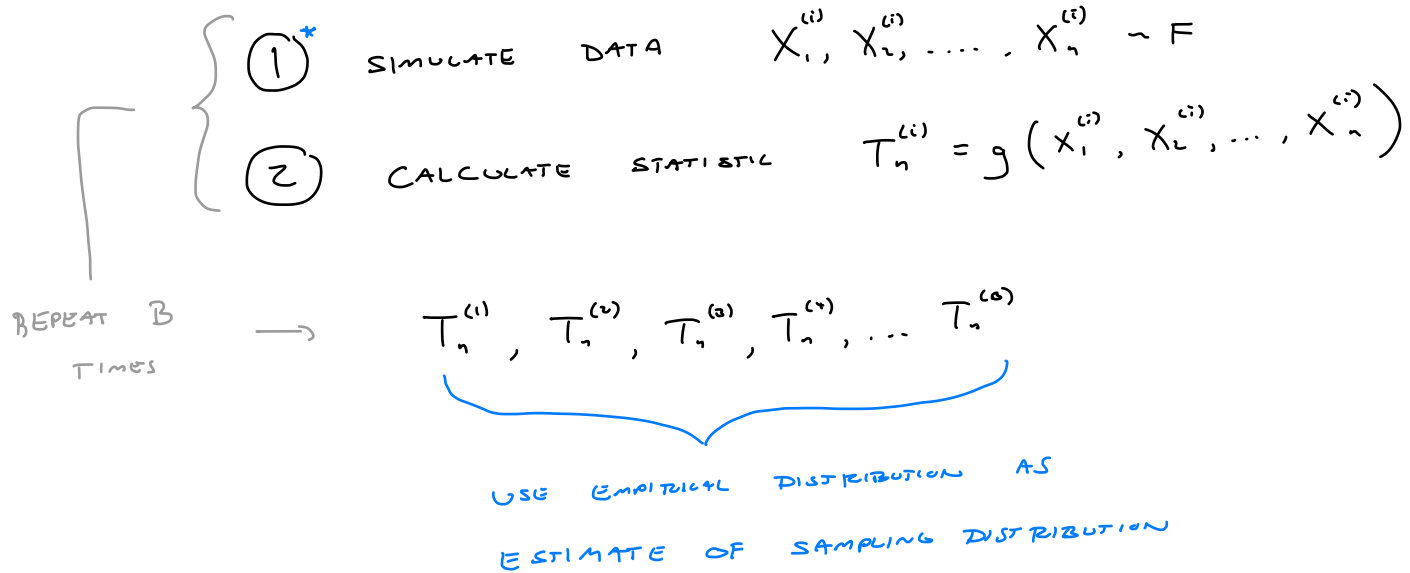 1* SIMULATE DATA X₁⁽ⁱ⁾, X₂⁽ⁱ⁾, ...., Xₙ⁽ⁱ⁾ ~ F
2 CALCULATE STATISTIC Tₙ⁽ⁱ⁾ = g(X₁⁽ⁱ⁾, X₂⁽ⁱ⁾, ..., Xₙ⁽ⁱ⁾)
REPEAT B
TIMES
→ Tₙ⁽¹⁾, Tₙ⁽²⁾, Tₙ⁽³⁾, Tₙ⁽⁴⁾, ... Tₙ⁽ᴮ⁾
USE EMPIRICAL DISTRIBUTION AS
ESTIMATE OF SAMPLING DISTRIBUTION